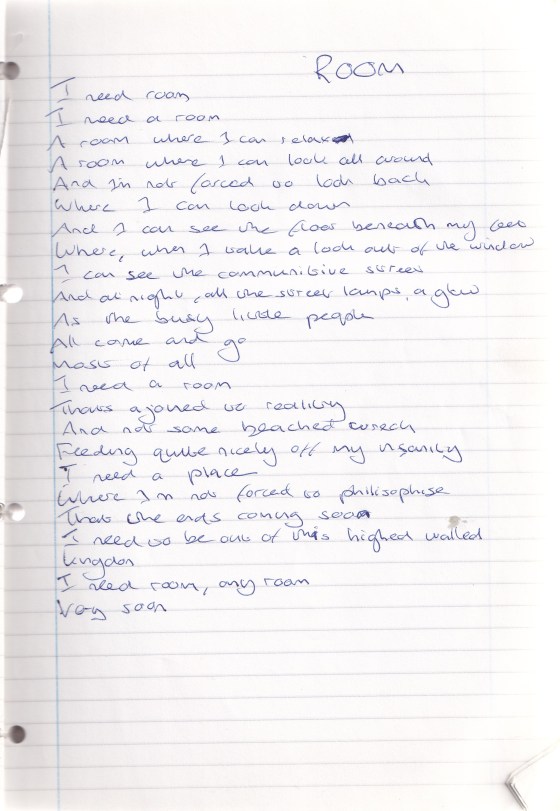 ROOM
I need room
I need a room
A room where I can relax
A room where I can look all around
And I'm not forced to look back
Where I can look down
And I can see the floor beneath my feet
Where, when I take a look out of the window
I can see the communitive street
And at night, all the street lamps, a glow
As the busy little people
All come and go
Most of all
I need a room
Thats ajoined to reality
And not some beached wreck
Feeding quite nicely off my insanity
I need a place
Where I'm not forced to philisophise
That the ends coming soon
I need to be out of this highed walled
kingdom
I need room, any room
Very soon